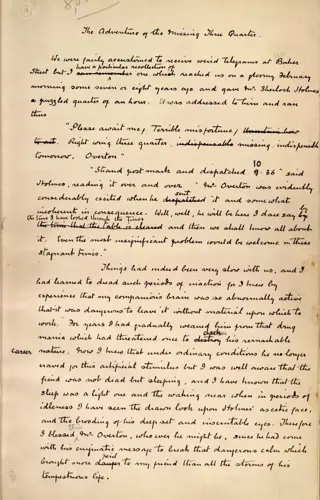 The Adventure of the Missing Three Quarter.
We were fairly accustomed to receive weird telegrams at Baker
have a particular recollection of
Street but I can remember one which reached us on a gloomy February
morning some seven or eight years ago and gave Mr. Sherlock Holmes
a puzzled quarter of an hour. It was addressed to him and ran
thus
"Please await me, Terrible misfortune,
Right wing three quarter, indispensable missing, indispensable
tomorrow. Overton"
10
"Strand post mark and dispatched 9.36" said
Holmes, reading it over and over "Mr. Overton was evidently
sent
considerably excited when he dispatched it and somewhat
incoherent in consequence. Well, well, he will be here I dare say by
the time I have looked through the Times
the time that the table is cleared and then we shall know all about
it. Even the most insignificant problem would be welcome in these
stagnant times."
Things had indeed been very slow with us, and I
had learned to dread such periods of inaction for I knew by
experience that my companion's brain was so abnormally active
that it was dangerous to leave it without material upon which to
work. For years I had gradually weaned him from that drug
check
mania which had threatened once to destroy his remarkable
career
nature. Now I knew that under ordinary conditions he no longer
craved for this artificial stimulus but I was well aware that the
fiend was not dead but sleeping, and I have known that the
sleep was a light one and the waking near when in periods of
idleness I have seen the drawn look upon Holmes' ascetic face,
and the brooding of his deep set and inscrutable eyes. Therefore
I blessed Mr. Overton, whoever he might be, since he had come
with his enigmatic message to break that dangerous calm which
peril
brought more danger to my friend than all the storms of his
tempestuous life.